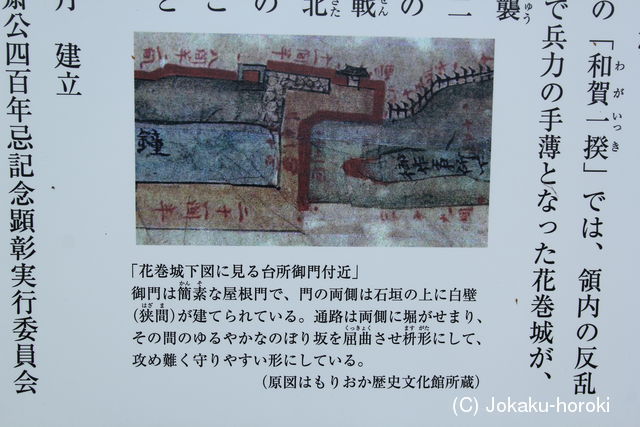 の「和賀一揆」では、領内の反乱
で兵力の手薄となった花巻城が、
襲
二
の
戦
北
の
こ
と
「花巻城下図に見る台所御門付近」
御門は簡素な屋根門で、門の両側は石垣の上に白壁
(狭間)が建てられている。通路は両側に堀がせまり、
その間のゆるやかなのぼり坂を屈曲させ枡形にして、
攻め難く守りやすい形にしている。
(原図はもりおか歴史文化館所蔵)
月 建立
斎公四百年忌記念顕彰実行委員会
(C) Jokaku-horoki